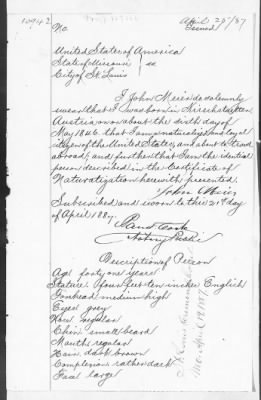 10942
April 25th/87
No.
Issued
United States of America
State of Missouri } ss
City of St. Louis
I John Meier do solemnly
swear that I was born in
Austria on or about the sixth day of
May 1846. that I am a naturalized and loyal
citizen of the United States, and about to travel
abroad, and further that I am the identical
person described in the Certificate of
Naturalization herewith presented.
John Meier
Subscribed and sworn to this 21st day
of April 1887.
Notary Public
Description of Person
Age forty one years
Stature four feet ten inches English
Forehead medium high
Eyes grey
Nose regular
Chin small beard
Mouth regular
Hair dark brown
Complexion rather dark
Face large